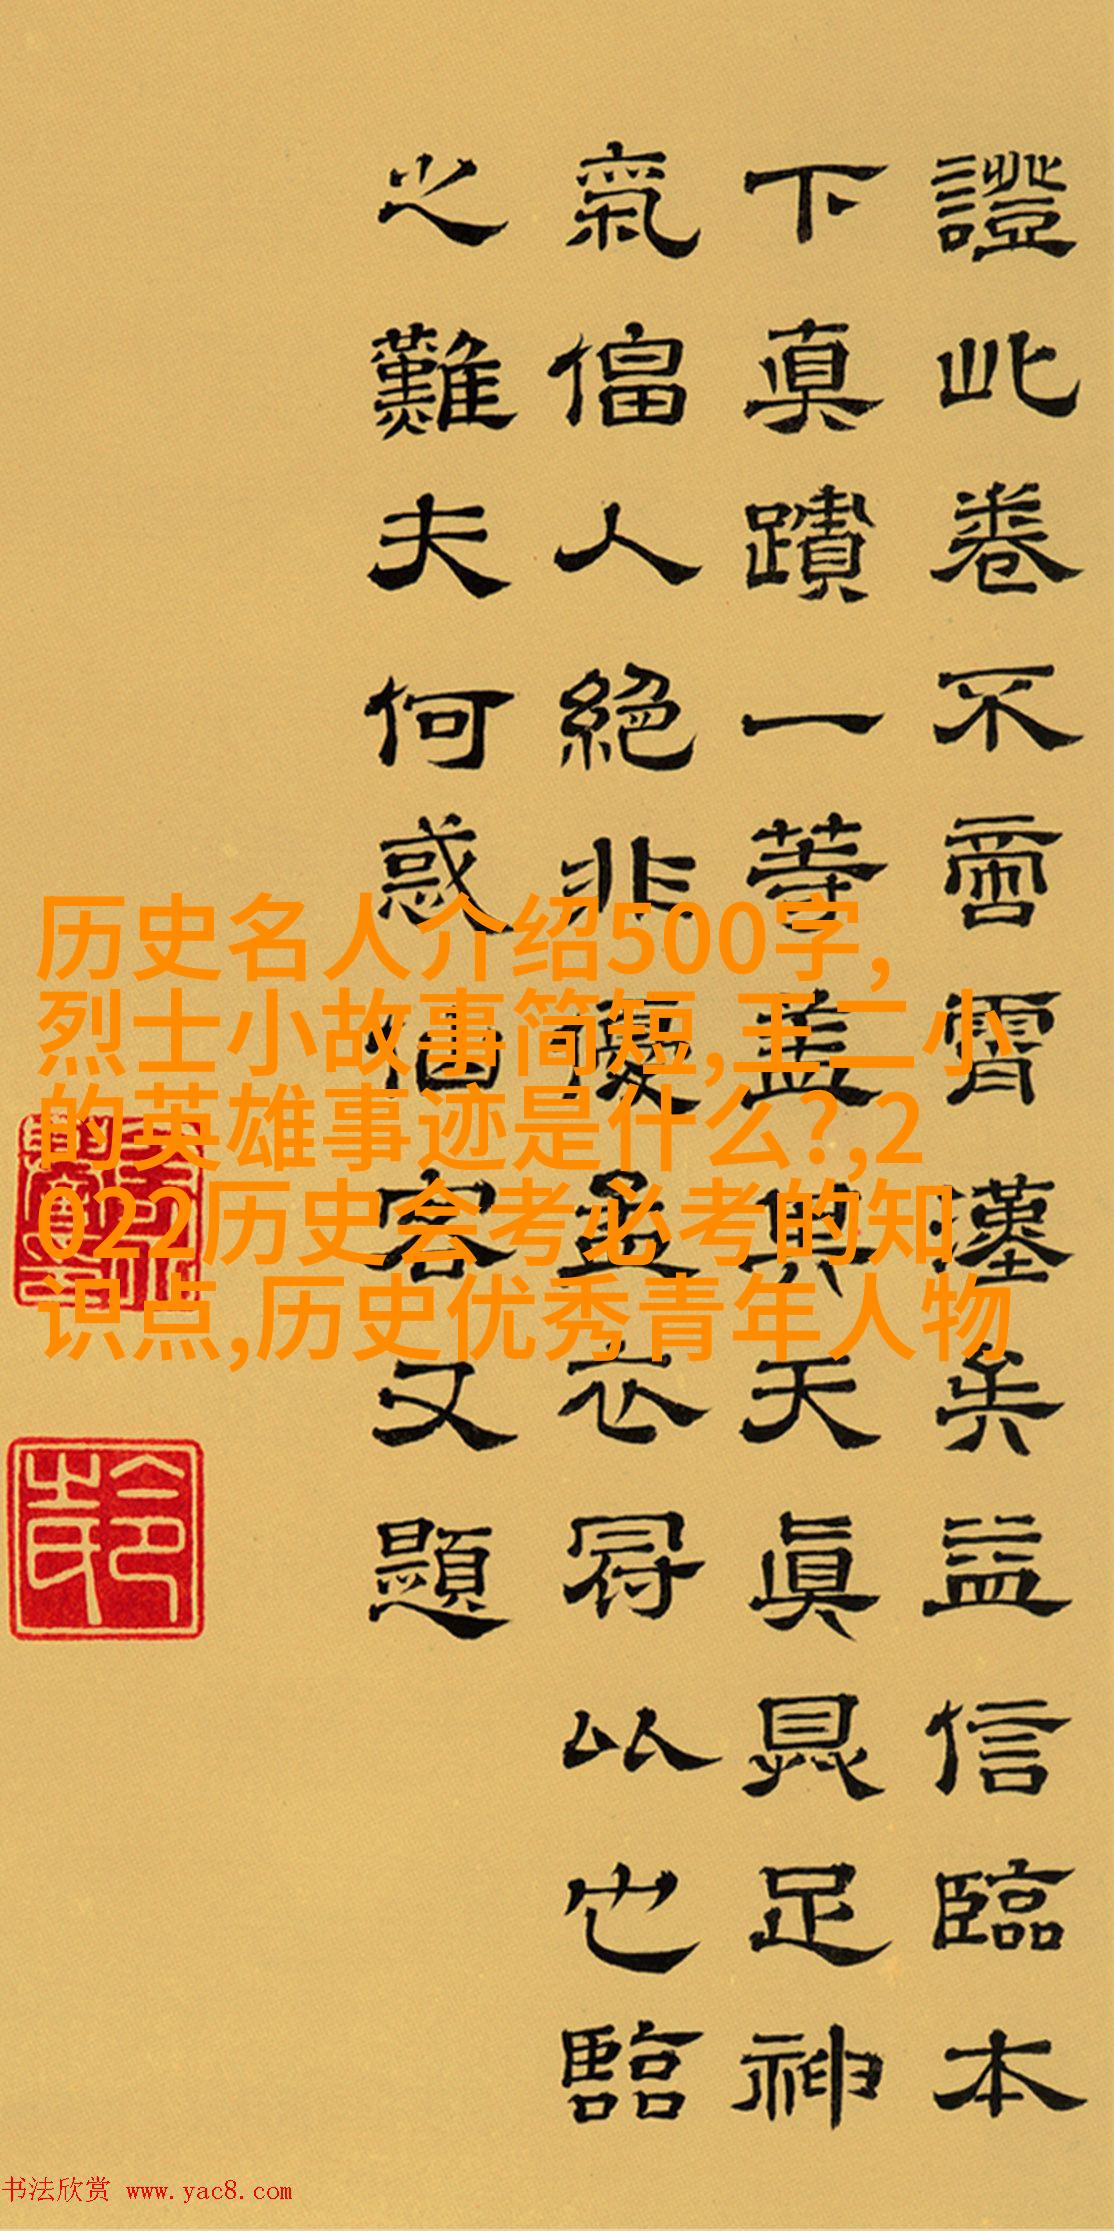 證此卷不啻霄漢矣益信臨本
下真蹟一等蓋其天眞具足神
氣偪人絕非優孟衣冠以也臨
之難夫何惑容又題
历史名人介绍500字,
烈士小故事简短,王二小
的英雄事迹是什么?,2
022历史会考必考的知
识点,历史优秀青年人物
书法欣赏 www.yac8.com